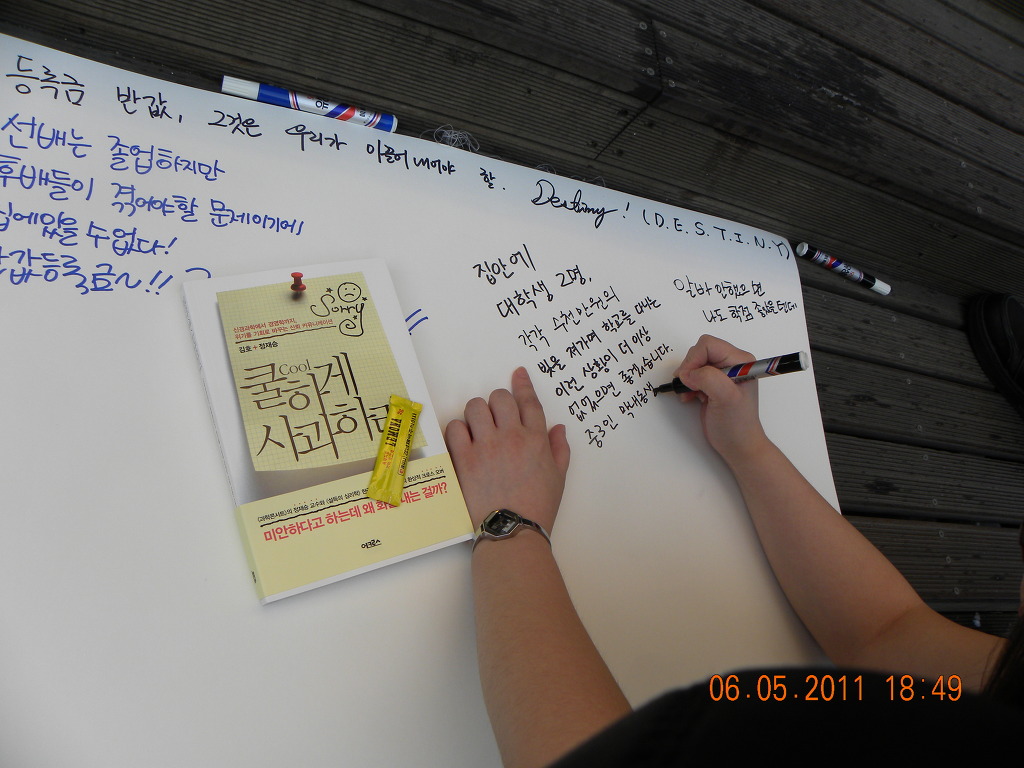 등록금 반값, 그것은 우리가 이끌어내어야 할. Destiny! (D.E.S.T.I.N.Y)
선배는 졸업하지만
후배들이 겪어야할 문제이기에
있을 수 없다!
반값등록금~!!
집안에
대학생 2명,
각각 수천만원의
빚을 져가며 학교를 다니는
이런 상황이 더 이상
없었으면 좋겠습니다.
중3인 막내동생
알바 안했으면
나도 학점 좋았을텐데
Sorry
신경과학에서 경영학까지,
위기를 기회로 바꾸는 신뢰 커뮤니케이션
김호 + 정재승
Cool
쿨하게
사과하라
LEMONA
《과학콘서트》의 정재승 교수와 《설득의 심리학》
환상적 크로스 오버
미안하다고 하는데 왜 화를 내는 걸까?
어크로스
06.05.2011 18:49